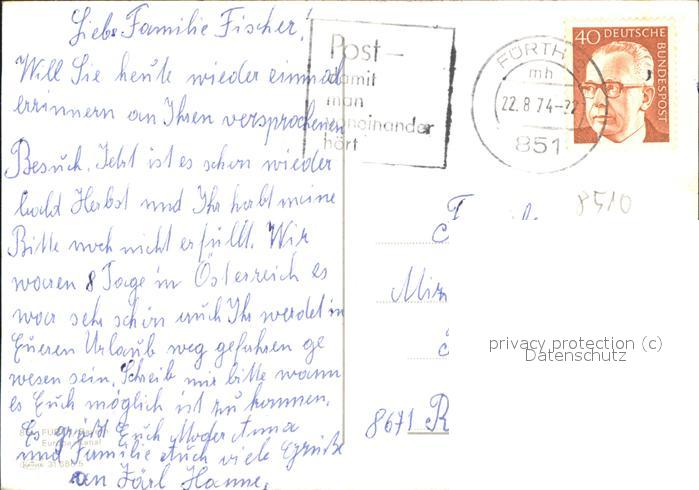 Liebe Familie Fischer!
Will Sie heute wieder einmal
errinnern an Ihren versprochenen
Besuch. Jetzt ist es schon wieder
bald Herbst und Ihr habt meine
Bitte noch nicht erfüllt. Wir
waren 8 Tage in Österreich es
war sehr schön auch Ihr werdet in
Eueren Urlaub weg gefahren ge
wesen sein. Schreib mir bitte wann
es Euch möglich ist zu kommen.
Es grüßt Euch Anna
und Familie Auch viele Grüße
an
Post-
damit
man
voneinander
hört
FÜRTH
mh
22.8.74-22
851
40 DEUTSCHE
BUNDESPOST
8510
8671 R
privacy protection (c)
Datenschutz